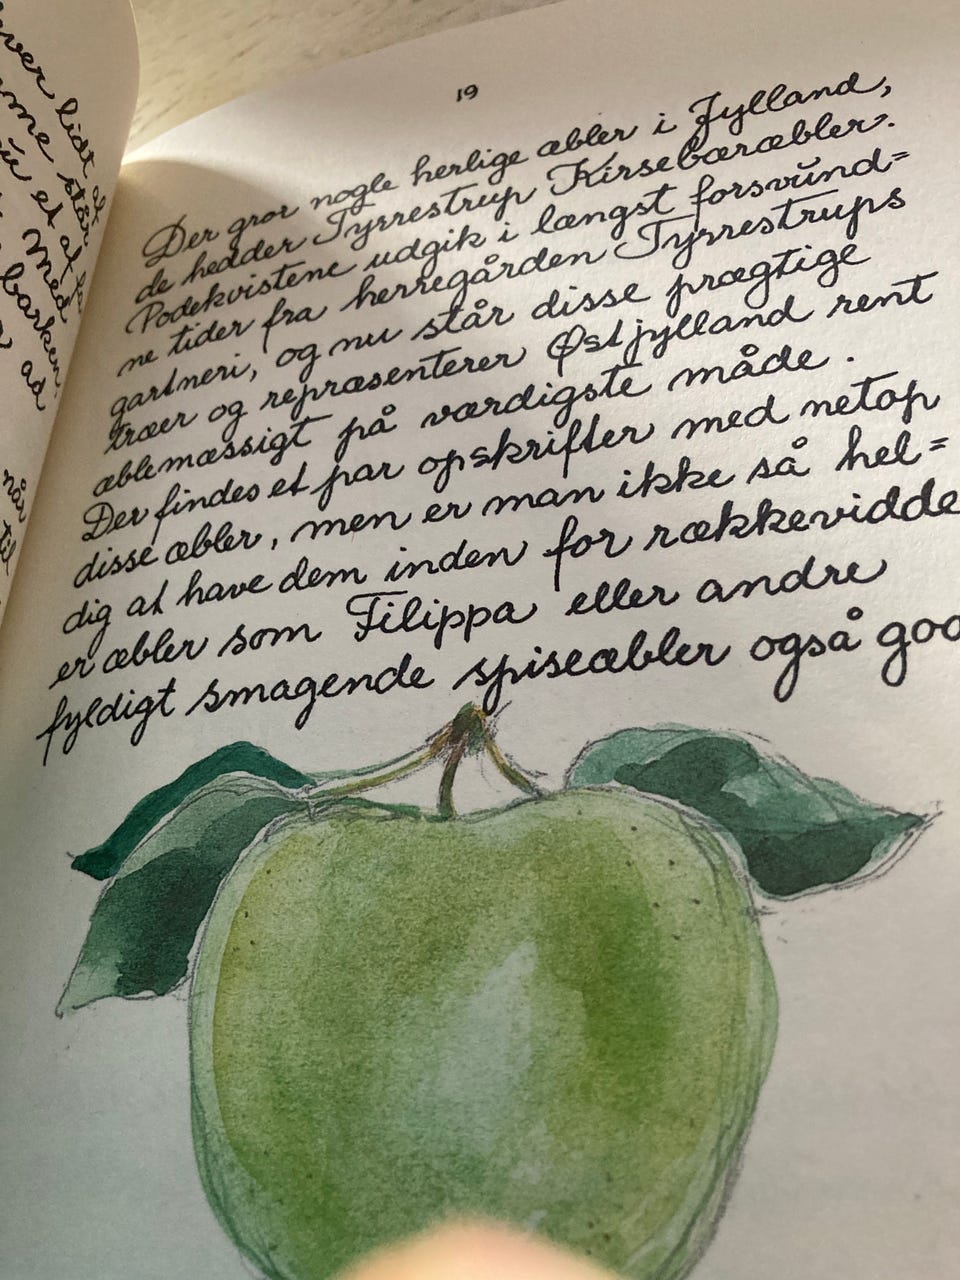 19
Der gror nogle herlige æbler i Jylland,
de hedder Tyrrestrup Kirsebæræbler.
Podekvistene udgik i længst forsvund=
ne tider fra herregården Tyrrestrups
gartneri, og nu står disse prægtige
træer og repræsenterer Østjylland rent
æblemæssigt på værdigste måde.
Der findes et par opskrifter med netop
disse æbler, men er man ikke så hel=
dig at have dem inden for rækkevidde
er æbler som Filippa eller andre
fyldigt smagende spiseæbler også
lidt af
står
et af
Med
barken
ad
når
til